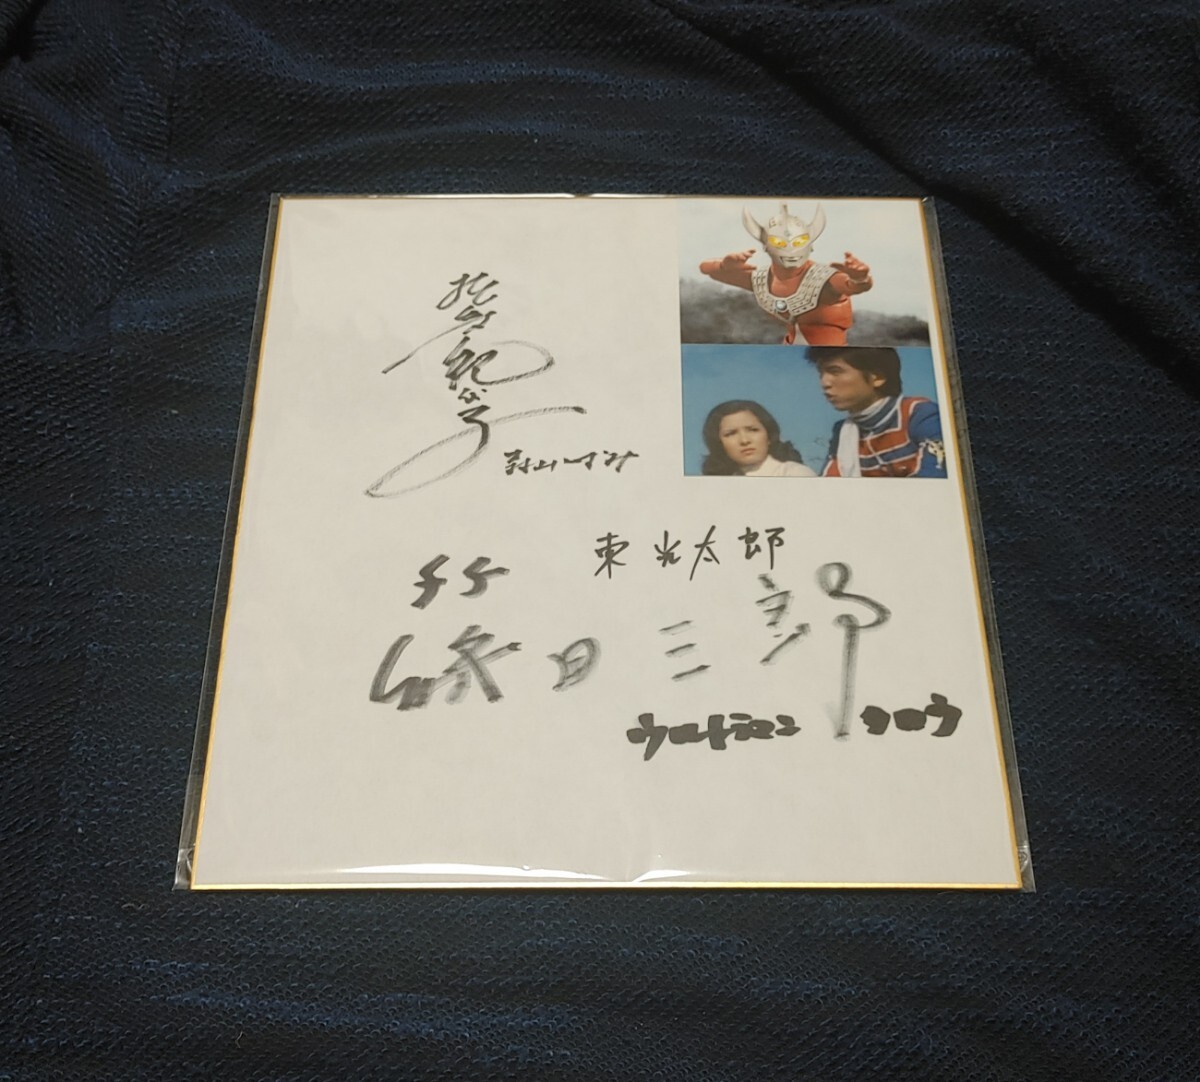 松谷紀代子
森山いずみ
東光太郎
篠田三郎
ウルトラマン タロウ